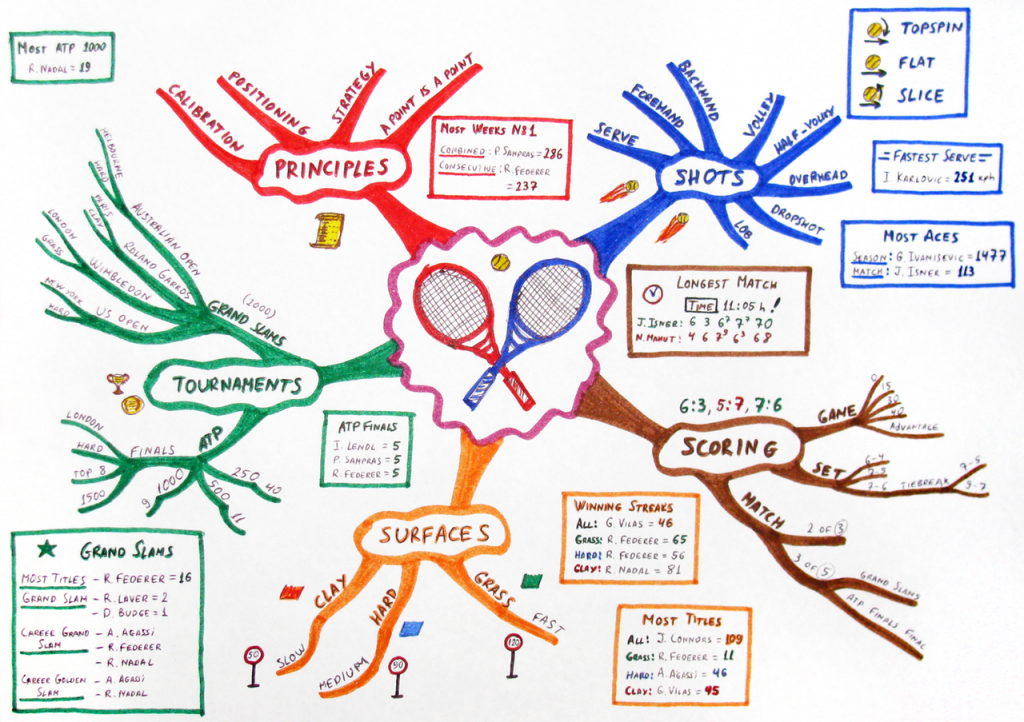 MOST ATP 1000
R. NADAL = 19
CALIBRATION
POSITIONING
STRATEGY
A POINT IS A POINT
PRINCIPLES
MOST WEEKS Nº1
COMBINED: P. SAMPRAS = 286
CONSECUTIVE: R. FEDERER
= 237
SERVE
FOREHAND
BACKHAND
VOLLEY
HALF-VOLLEY
OVERHEAD
DROPSHOT
LOB
SHOTS
TOPSPIN
FLAT
SLICE
=FASTEST SERVE=
I. KARLOVIC = 251 kph
MOST ACES
SEASON: G. IVANISEVIC = 1477
MATCH: J. ISNER = 113
LONGEST MATCH
TIME 11:05 h!
J. ISNER: 6 3 6⁷ 7⁷ 70
N. MAHUT: 4 6 7⁹ 6³ 68
MELBOURNE
HARD
AUSTRALIAN OPEN
PARIS
CLAY
ROLAND GARROS
LONDON
GRASS
WIMBLEDON
NEW YORK
HARD
US OPEN
GRAND SLAMS
(2000)
TOURNAMENTS
ATP
FINALS
LONDON
HARD
TOP 8
1500
1000
9
500
11
250
40
ATP FINALS
I. LENDL = 5
P. SAMPRAS = 5
R. FEDERER = 5
6:3, 5:7, 7:6
SCORING
GAME
0
15
30
40
ADVANTAGE
SET
6-4
7-5
7-6
TIEBREAK
7-5
9-7
MATCH
2 OF 3
3 OF 5
GRAND SLAMS
ATP FINALS FINAL
SURFACES
CLAY
SLOW
50
HARD
MEDIUM
90
GRASS
FAST
120
WINNING STREAKS
ALL: G. VILAS = 46
GRASS: R. FEDERER = 65
HARD: R. FEDERER = 56
CLAY: R. NADAL = 81
MOST TITLES
ALL: J. CONNORS = 109
GRASS: R. FEDERER = 11
HARD: A. AGASSI = 46
CLAY: G. VILAS = 45
GRAND SLAMS
MOST TITLES - R. FEDERER = 16
GRAND SLAM - R. LAVER = 2
- D. BUDGE = 1
CAREER GRAND - A. AGASSI
SLAM - R. FEDERER
- R. NADAL
CAREER GOLDEN - A. AGASSI
SLAM - R. NADAL